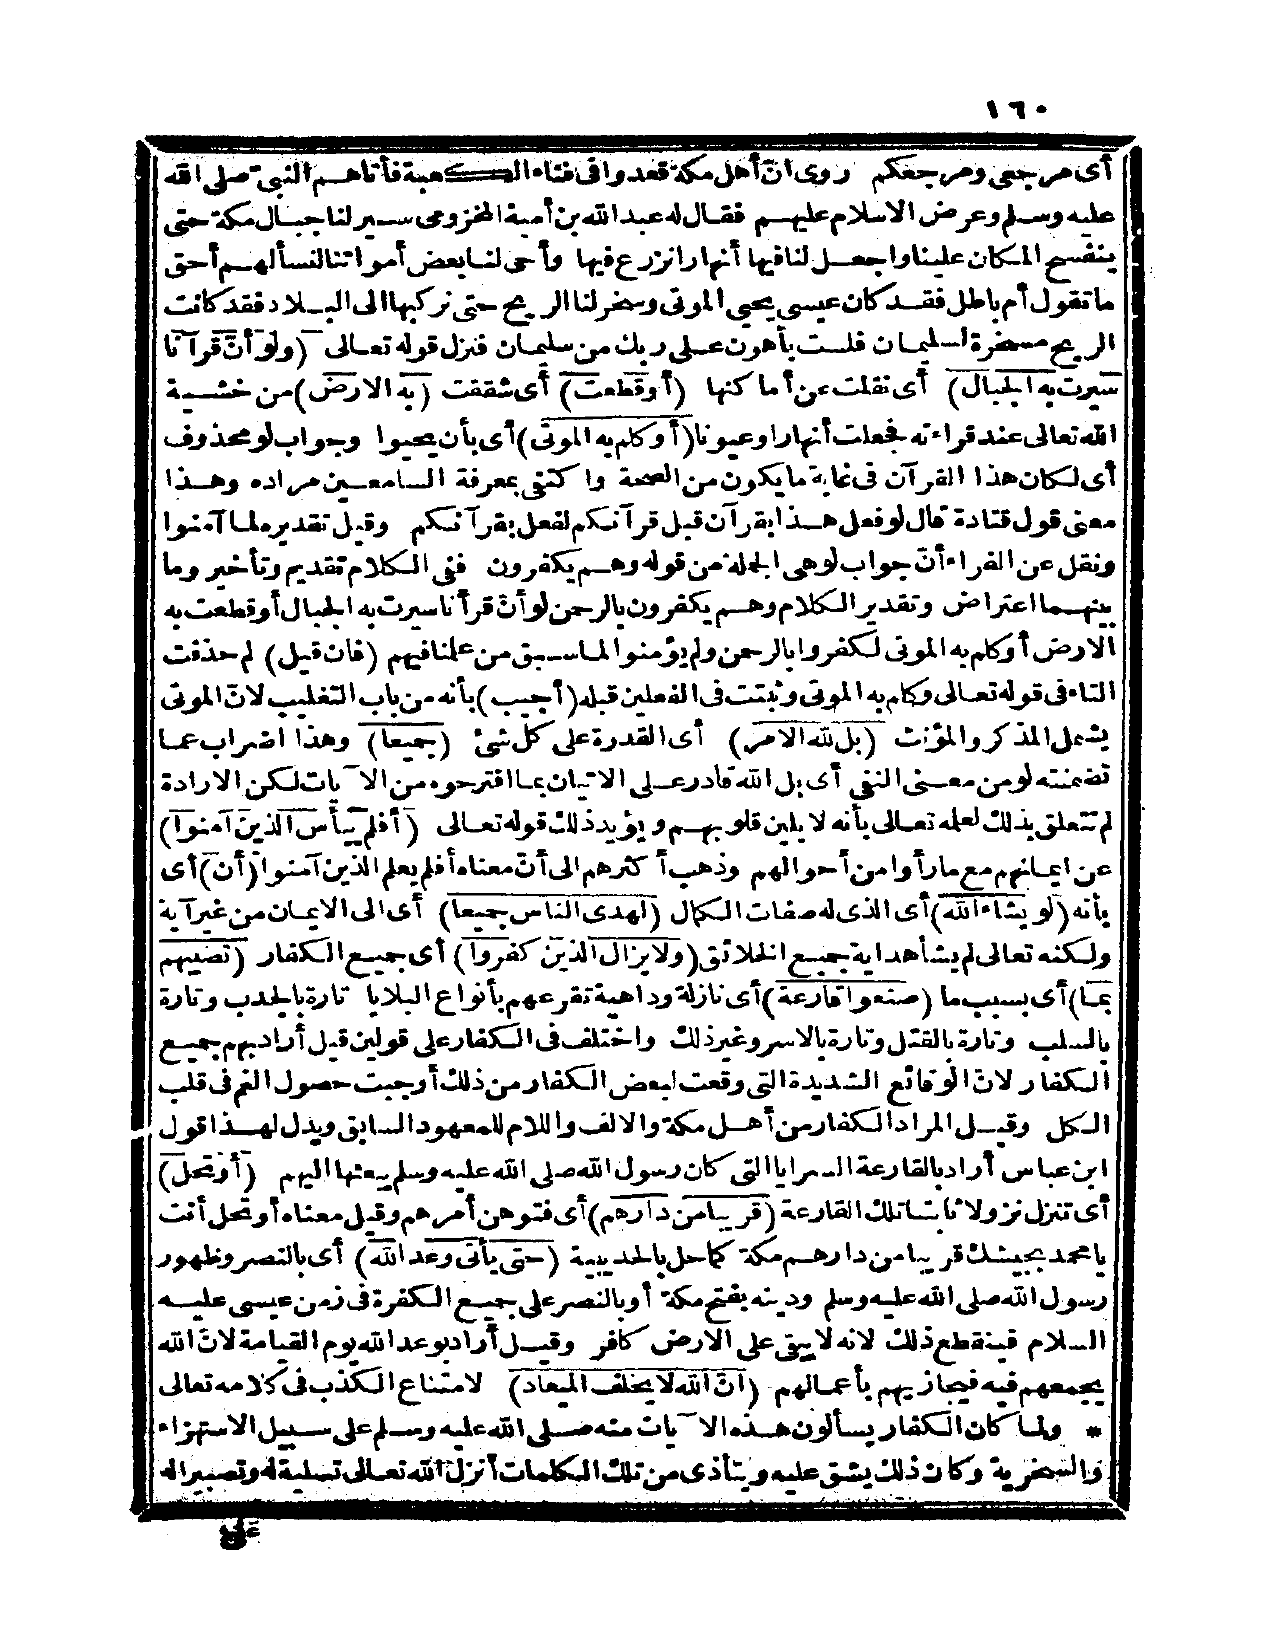 ١٦٠
أى مرجعى ومرجعكم روى انّ أهل مكة قعدوا فى فناء الكعبة فأتاهم النبىّ صلى الله
عليه وسلم وعرض الاسلام عليهم فقال له عبد الله بن أمية المخزومى سير لنا جبال مكة حتى
ينفسح المكان علينا واجعل لنا فيها أنهارا نزرع فيها وأحى لنا بعض أمواتنا لنسألهم أحق
ما تقول أم باطل فقد كان عيسى يحيى الموتى وسخر لنا الريح حتى نركبها الى البلاد فقد كانت
الريح مسخرة لسليمان فلست بأهون على ربك من سليمان فنزل قوله تعالى (ولو أنّ قرآنا
سيرت به الجبال) أى نقلت عن أماكنها (أو قطعت) أى شققت (به الارض) من خشية
الله تعالى عند قراءته فجعلت أنهارا وعيونا (أو كلم به الموتى) أى بأن يحيوا وجواب لو محذوف
أى لكان هذا القرآن فى غاية ما يكون من الصحة واكتفى بمعرفة السامعين مراده وهذا
معنى قول قتادة قال لو فعل هذا بقرآن قبل قرآنكم لفعل بقرآنكم وقيل تقديره لما آمنوا
ونقل عن الفراء أنّ جواب لو هى الجملة من قوله وهم يكفرون ففى الكلام تقديم وتأخير وما
بينهما اعتراض وتقدير الكلام وهم يكفرون بالرحمن لو أنّ قرآنا سيرت به الجبال أو قطعت به
الارض أو كلم به الموتى لكفروا بالرحمن ولم يؤمنوا لما سبق من علمنا فيهم (فان قيل) لم حذفت
التاء فى قوله تعالى وكلم به الموتى وثبتت فى الفعلين قبله (أجيب) بأنه من باب التغليب لانّ الموتى
يشمل المذكر والمؤنث (بل لله الامر) أى القدرة على كل شئ (جميعا) وهذا اضراب عما
تضمنته لو من معنى النفى أى بل الله قادر على الاتيان بما اقترحوه من الآيات لكن الارادة
لم تتعلق بذلك لعلمه تعالى بأنه لا يلين قلوبهم ويؤيد ذلك قوله تعالى (أفلم ييأس الذين آمنوا)
عن ايمانهم مع ما رأوا من أحوالهم وذهب أكثرهم الى أنّ معناه أفلم يعلم الذين آمنوا (أن) أى
بأنه (لو يشاء الله) أى الذى له صفات الكمال (لهدى الناس جميعا) أى الى الايمان من غير آية
ولكنه تعالى لم يشأ هداية جميع الخلائق (ولا يزال الذين كفروا) أى جميع الكفار (تصيبهم
بما) أى بسبب ما (صنعوا قارعة) أى نازلة وداهية تقرعهم بأنواع البلايا تارة بالجدب وتارة
بالسلب وتارة بالقتل وتارة بالاسر وغير ذلك واختلف فى الكفار على قولين قيل أراد بهم جميع
الكفار لانّ الوقائع الشديدة التى وقعت لبعض الكفار من ذلك أوجبت حصول الغم فى قلب
الكل وقيل المراد الكفار من أهل مكة والالف واللام للمعهود السابق ويدل لهذا قول
ابن عباس أراد بالقارعة السرايا التى كان رسول الله صلى الله عليه وسلم يبعثها اليهم (أو تحل)
أى تنزل نزولا ثابتا تلك القارعة (قريبا من دارهم) أى فتوهن أمرهم وقيل معناه أو تحل أنت
يا محمد بجيشك قريبا من دارهم مكة كما حل بالحديبية (حتى يأتى وعد الله) أى بالنصر وظهور
رسول الله صلى الله عليه وسلم ودينه بفتح مكة أو بالنصر على جميع الكفرة فى زمن عيسى عليه
السلام فينقطع ذلك لانه لا يبقى على الارض كافر وقيل أراد بوعد الله يوم القيامة لانّ الله
يجمعهم فيه فيجازيهم بأعمالهم (انّ الله لا يخلف الميعاد) لامتناع الكذب فى كلامه تعالى
* ولما كان الكفار يسألون هذه الآيات منه صلى الله عليه وسلم على سبيل الاستهزاء
والسخرية وكان ذلك يشق عليه ويتأذى من تلك الكلمات أنزل الله تعالى تسلية له وتصبيرا له